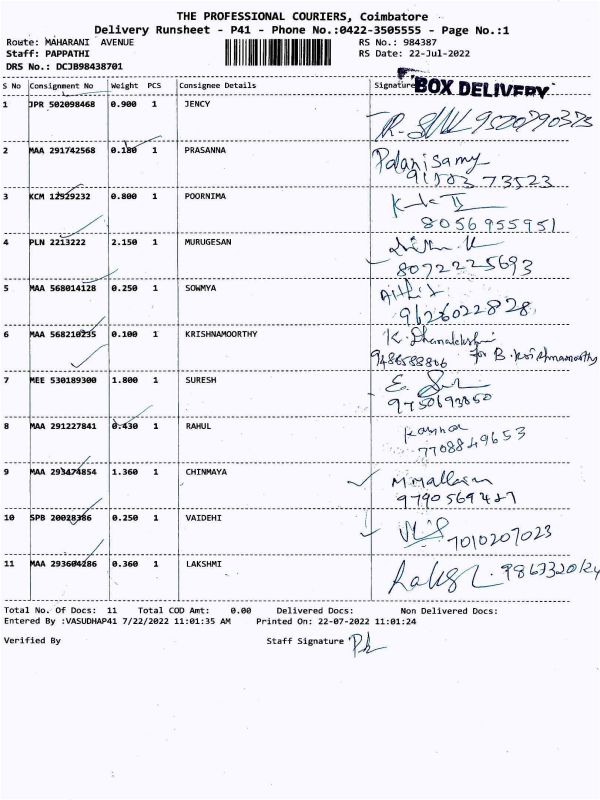 THE PROFESSIONAL COURIERS, Coimbatore
Delivery Runsheet - P41 - Phone No.:0422-3505555 - Page No.:1
Route: MAHARANI AVENUE RS No.: 984387
Staff: PAPPATHI RS Date: 22-Jul-2022
DRS No.: DCJB98438701
S No Consignment No Weight PCS Consignee Details Signature BOX DELIVERY
1 JPR 502098468 0.900 1 JENCY
2 MAA 291742568 0.180 1 PRASANNA Palanisamy
73523
3 KCM 12929232 0.800 1 POORNIMA
8056955951
4 PLN 2213222 2.150 1 MURUGESAN
8072225693
5 MAA 568014128 0.250 1 SOWMYA
9626022828
6 MAA 568210235 0.100 1 KRISHNAMOORTHY K. Dhanalakshmi
9486588806 for B. Krishnamoorthy
7 MEE 530189300 1.800 1 SURESH
9750693050
8 MAA 291227841 0.430 1 RAHUL
7708849653
9 MAA 293474854 1.360 1 CHINMAYA
9790569427
10 SPB 20028386 0.250 1 VAIDEHI
7010207023
11 MAA 293604286 0.360 1 LAKSHMI
Total No. Of Docs: 11 Total COD Amt: 0.00 Delivered Docs: Non Delivered Docs:
Entered By :VASUDHAP41 7/22/2022 11:01:35 AM Printed On: 22-07-2022 11:01:24
Verified By Staff Signature